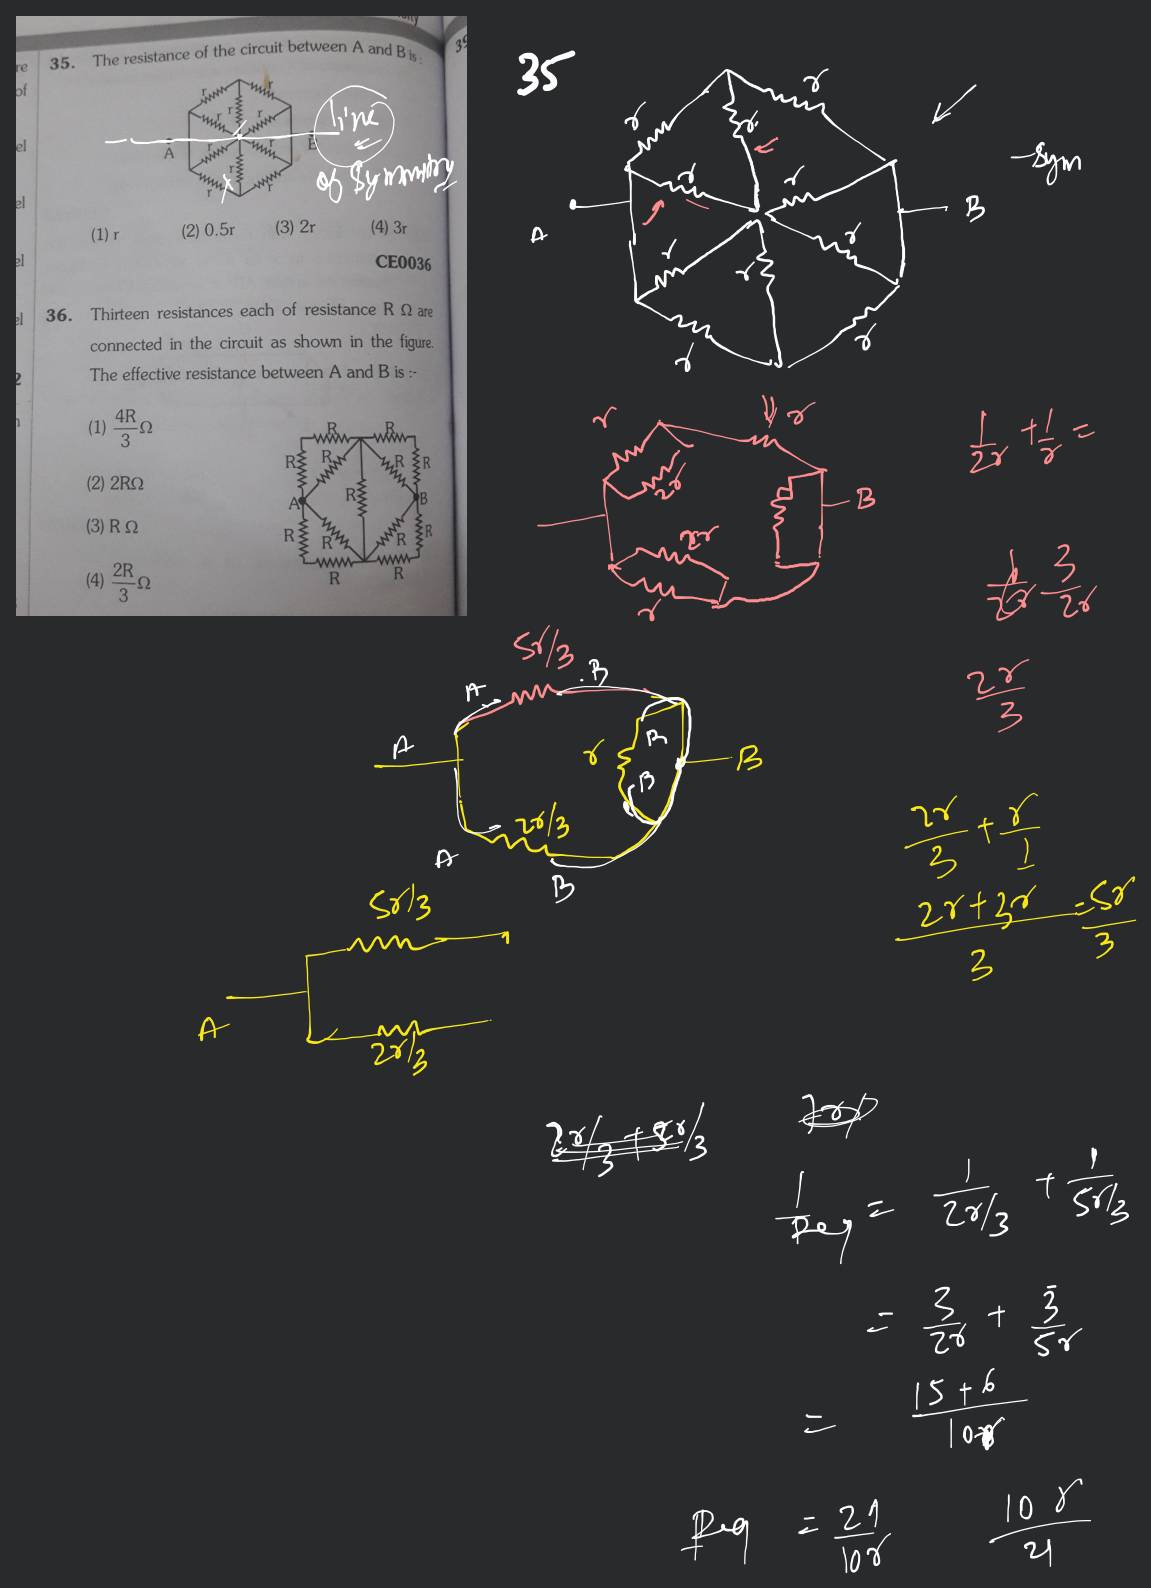 35. The resistance of the circuit between A and B is :
r
r
r
r
r
r
r
r
A
line
of Symmitry
(1) r
(2) 0.5r
(3) 2r
(4) 3r
CE0036
36. Thirteen resistances each of resistance R Ω are
connected in the circuit as shown in the figure.
The effective resistance between A and B is :-
(1) 4R/3 Ω
(2) 2RΩ
(3) R Ω
(4) 2R/3 Ω
R
R
R
R
R
R
A
R
B
R
R
R
R
R
R
35
r
r
r
r
r
r
r
r
r
r
A
B
-Sym
r
r
2r
B
2r
r
1/2r + 1/r =
3/2r
2r/3
5r/3
A
B
A
r
B
B
B
2r/3
A
B
2r/3 + r/1
2r+3r/3 = 5r/3
5r/3
A
2r/3
1/Req = 1/2r/3 + 1/5r/3
= 3/2r + 3/5r
= 15+6/10r
Req = 21/10r
10r/21